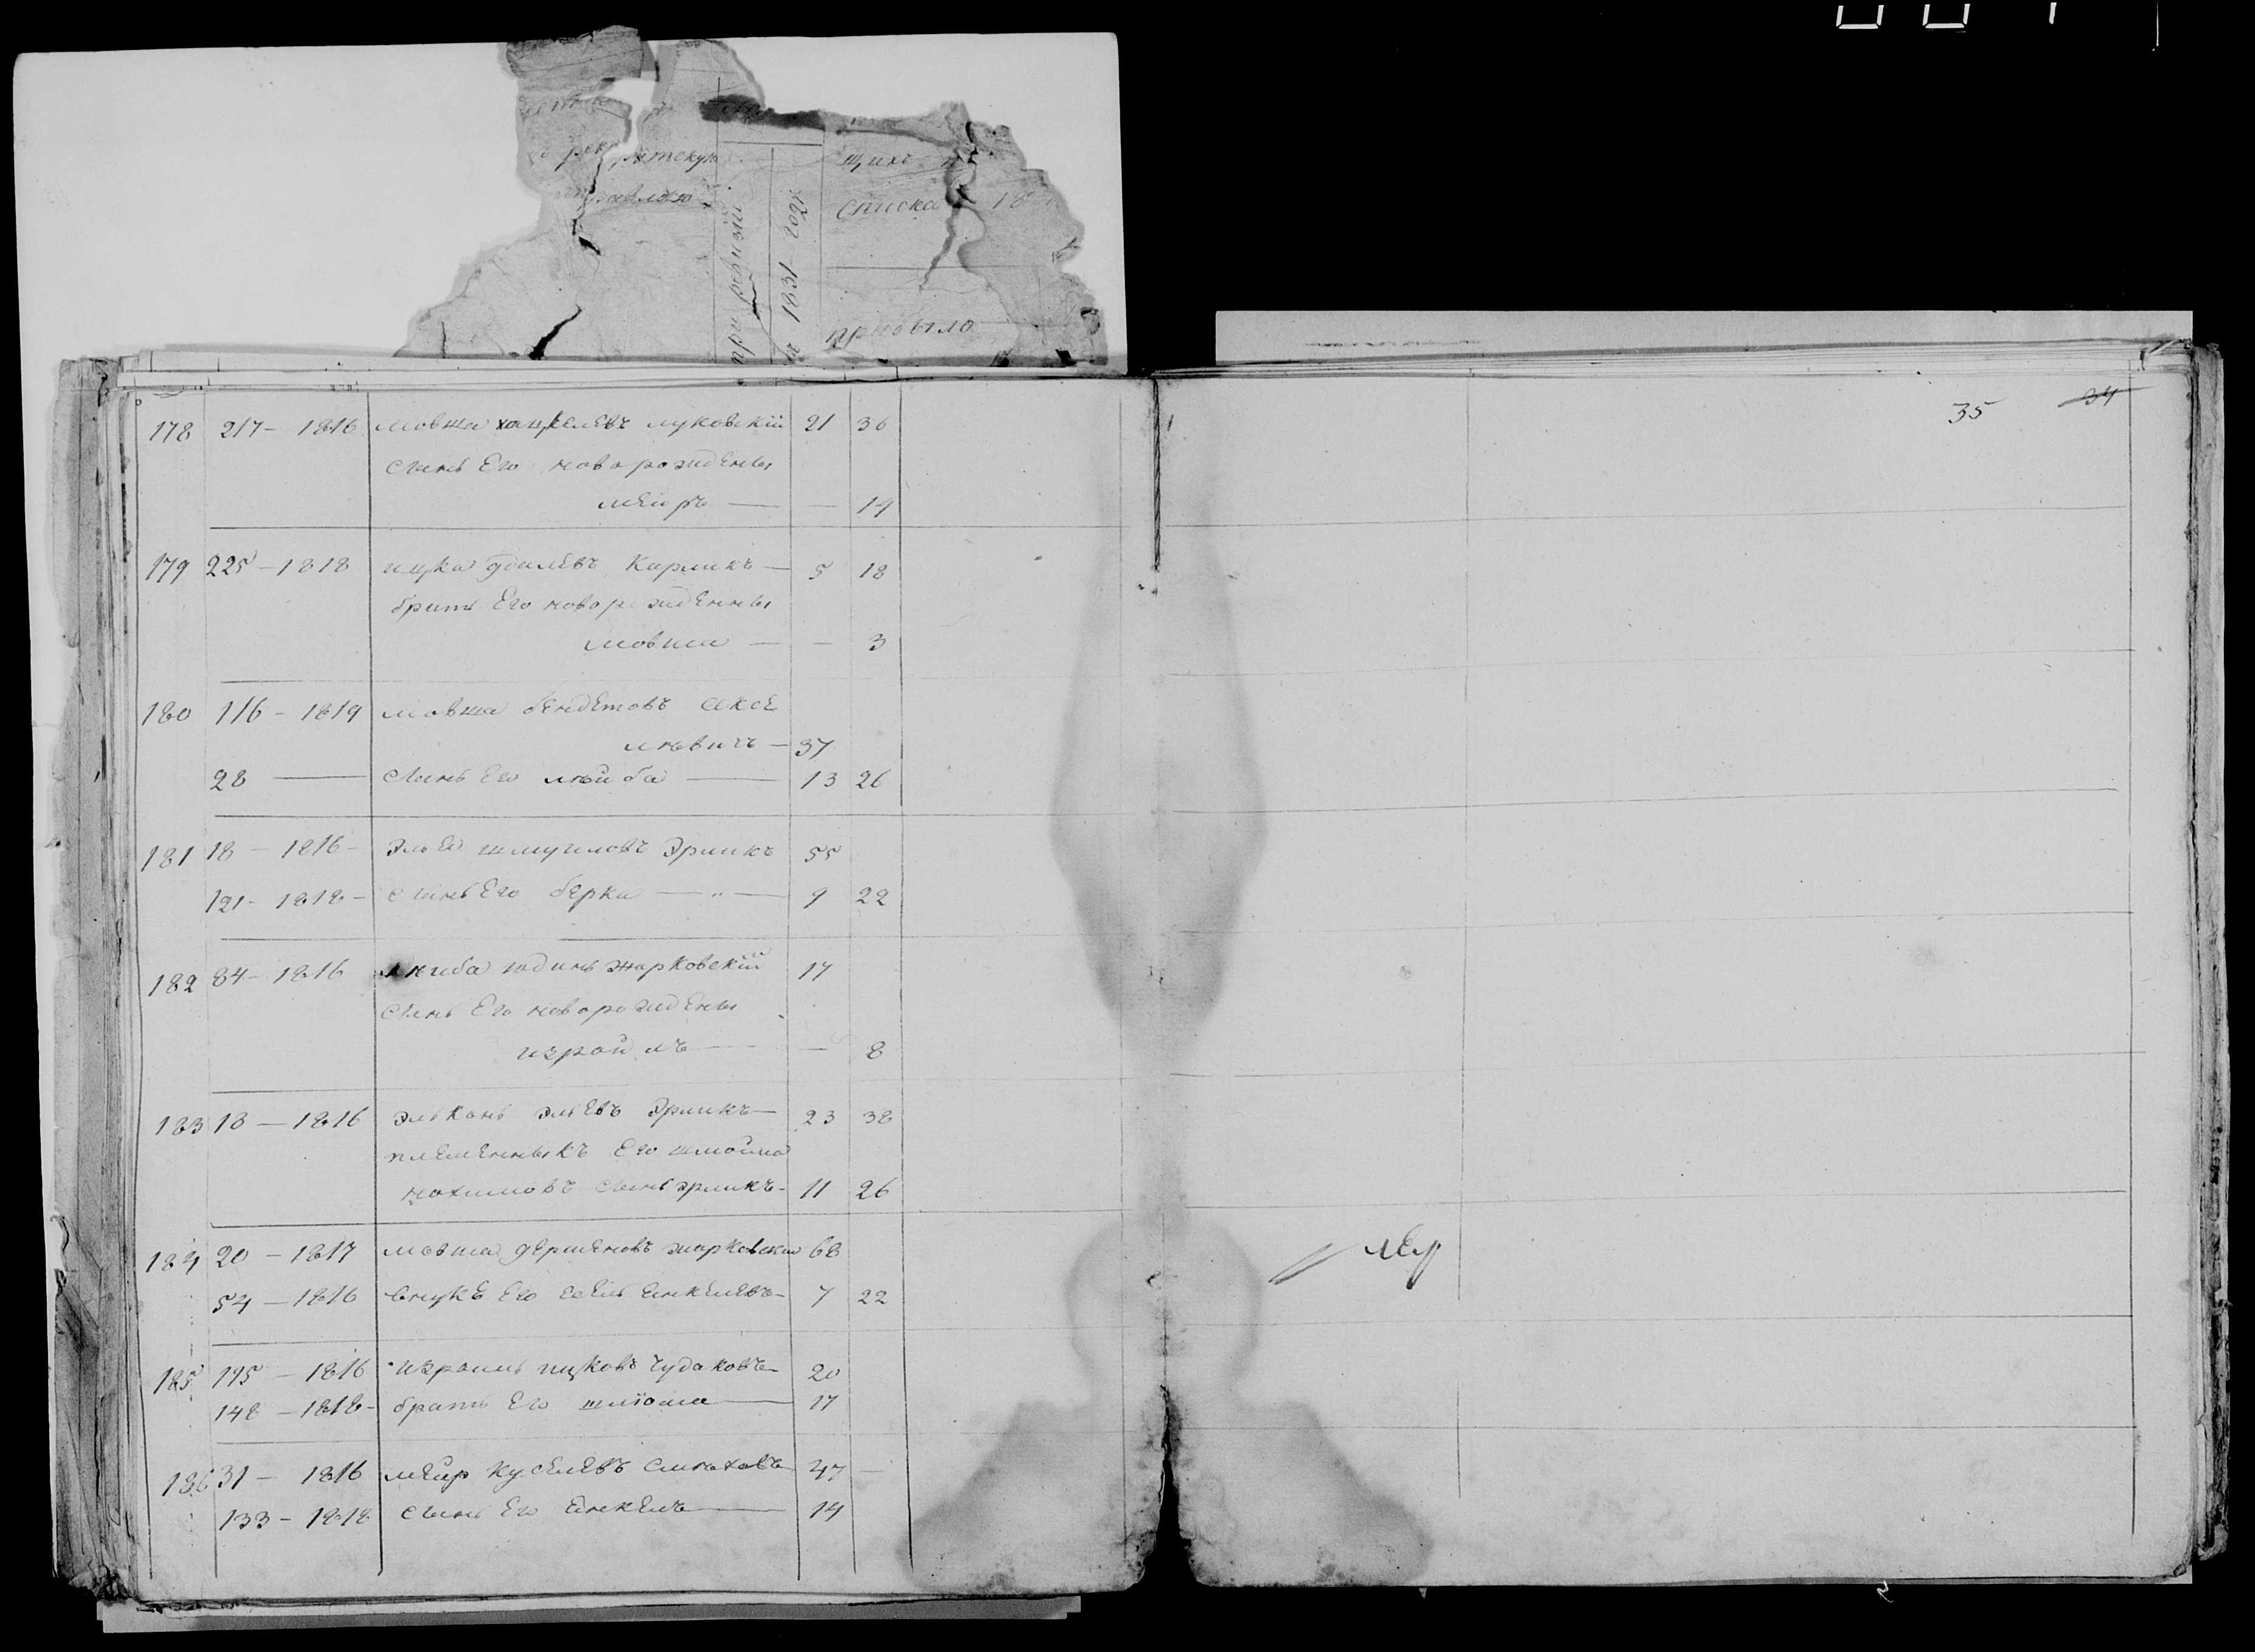 рекрутскую
при ревизіи
1831 году
щихъ
списка
прибыло
35 34
178 217 – 1816 мовша хацкелевъ луковскій 21 36
сынъ Его новорожденны
мЕиръ — — 14
179 225 – 1818 ицка Карликъ — 5 18
братъ Его новорожденны
мовша — — 3
180 116 – 1819 мовша бендетовъ аксе
льевичъ – 37
28 — сынъ Его лейба — 13 26
181 18 – 1816 – Эльея шмуиловъ Эрликъ 55
121 – 1818 – сынъ Его берка — „ — 9 22
182 84 – 1816 лейба юдинъ жарковскій 17
сынъ Его новорождены
израйлъ — — 8
183 18 — 1816 Эльконъ Эльевъ Эрликъ — 23 38
племенныкъ Его шлойма
нохимовъ сынъ эрликъ – 11 26
184 20 – 1817 мовша гершеновъ жарковскій 68
54 – 1816 внукъ Его Янкелевъ – 7 22
185 195 – 1816 израиль ицковъ чудаковъ 20
148 – 1818 – братъ Его шліома — 17
186 31 – 1816 мЕйр Куселевъ 47 —
133 – 1818 сынъ Его Янкель — 14